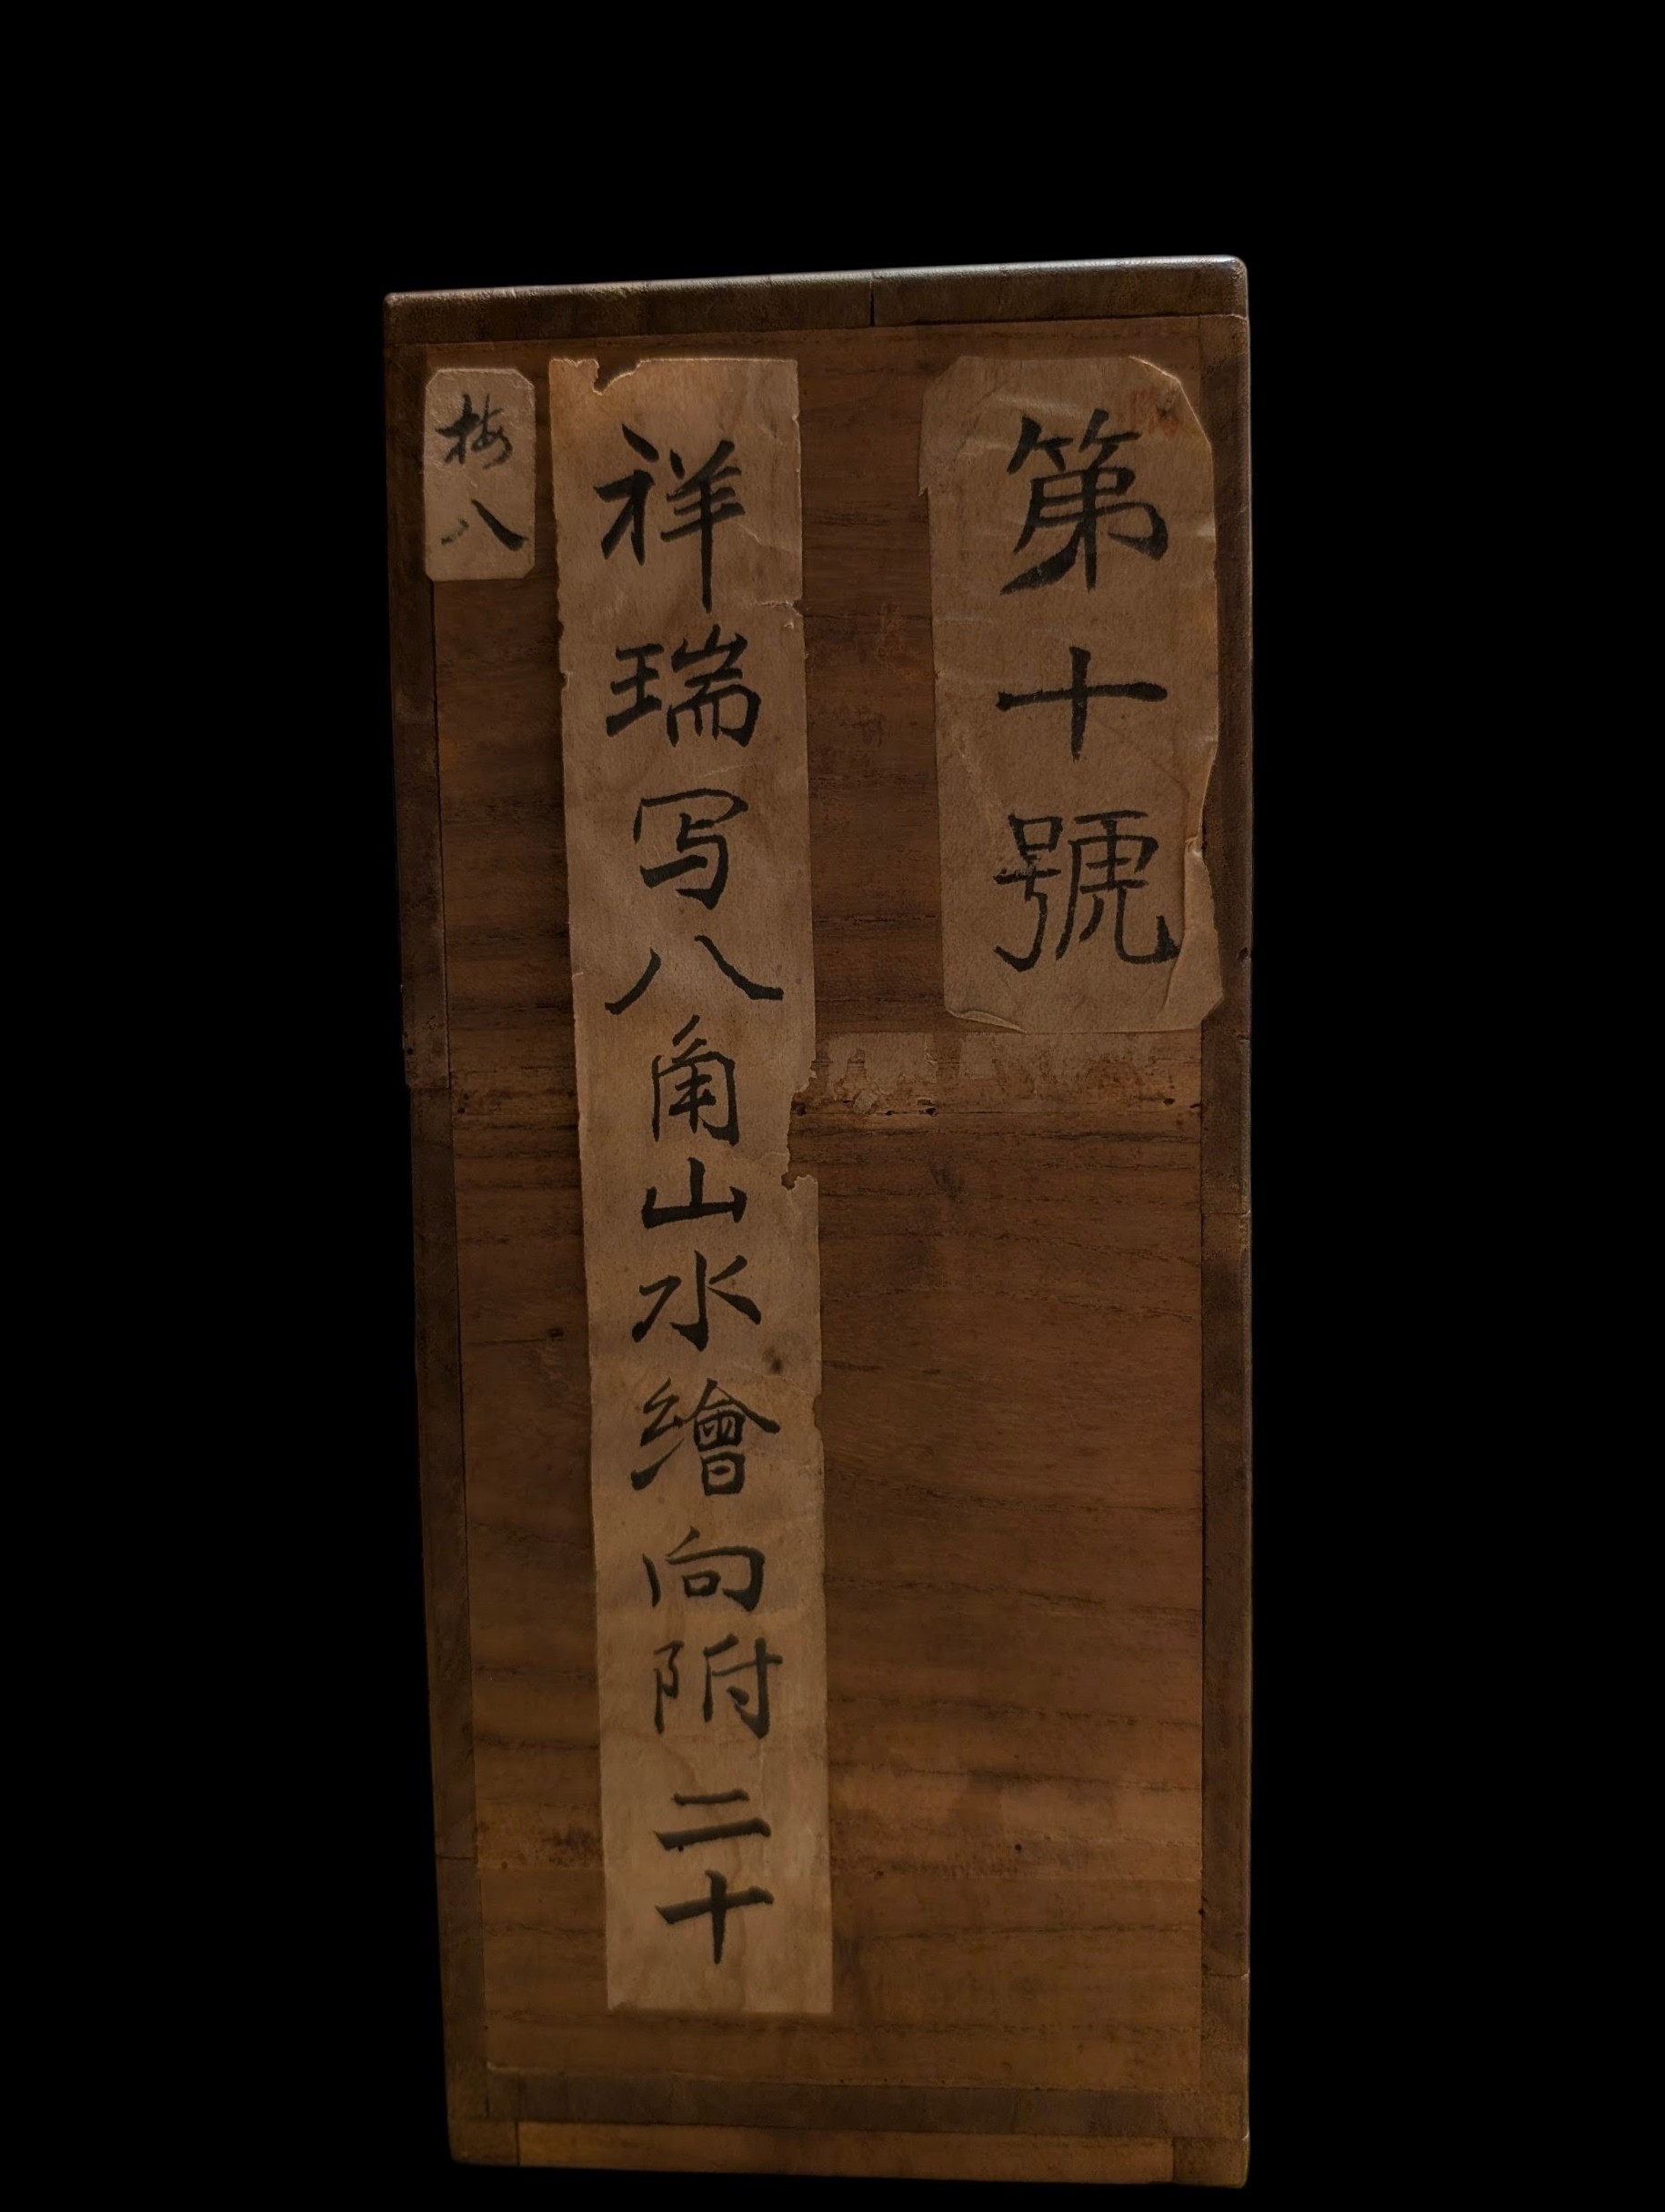 第十號
祥瑞写八角山水繪向附二十
梅八